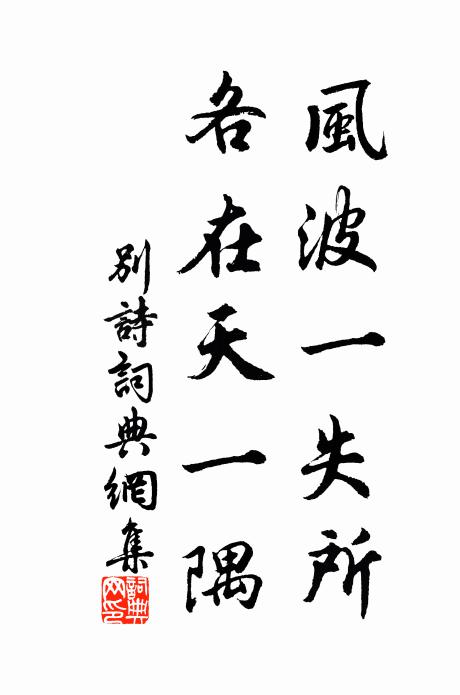 風波一失所
各在天一隅
別詩詞典網集
詞典網印